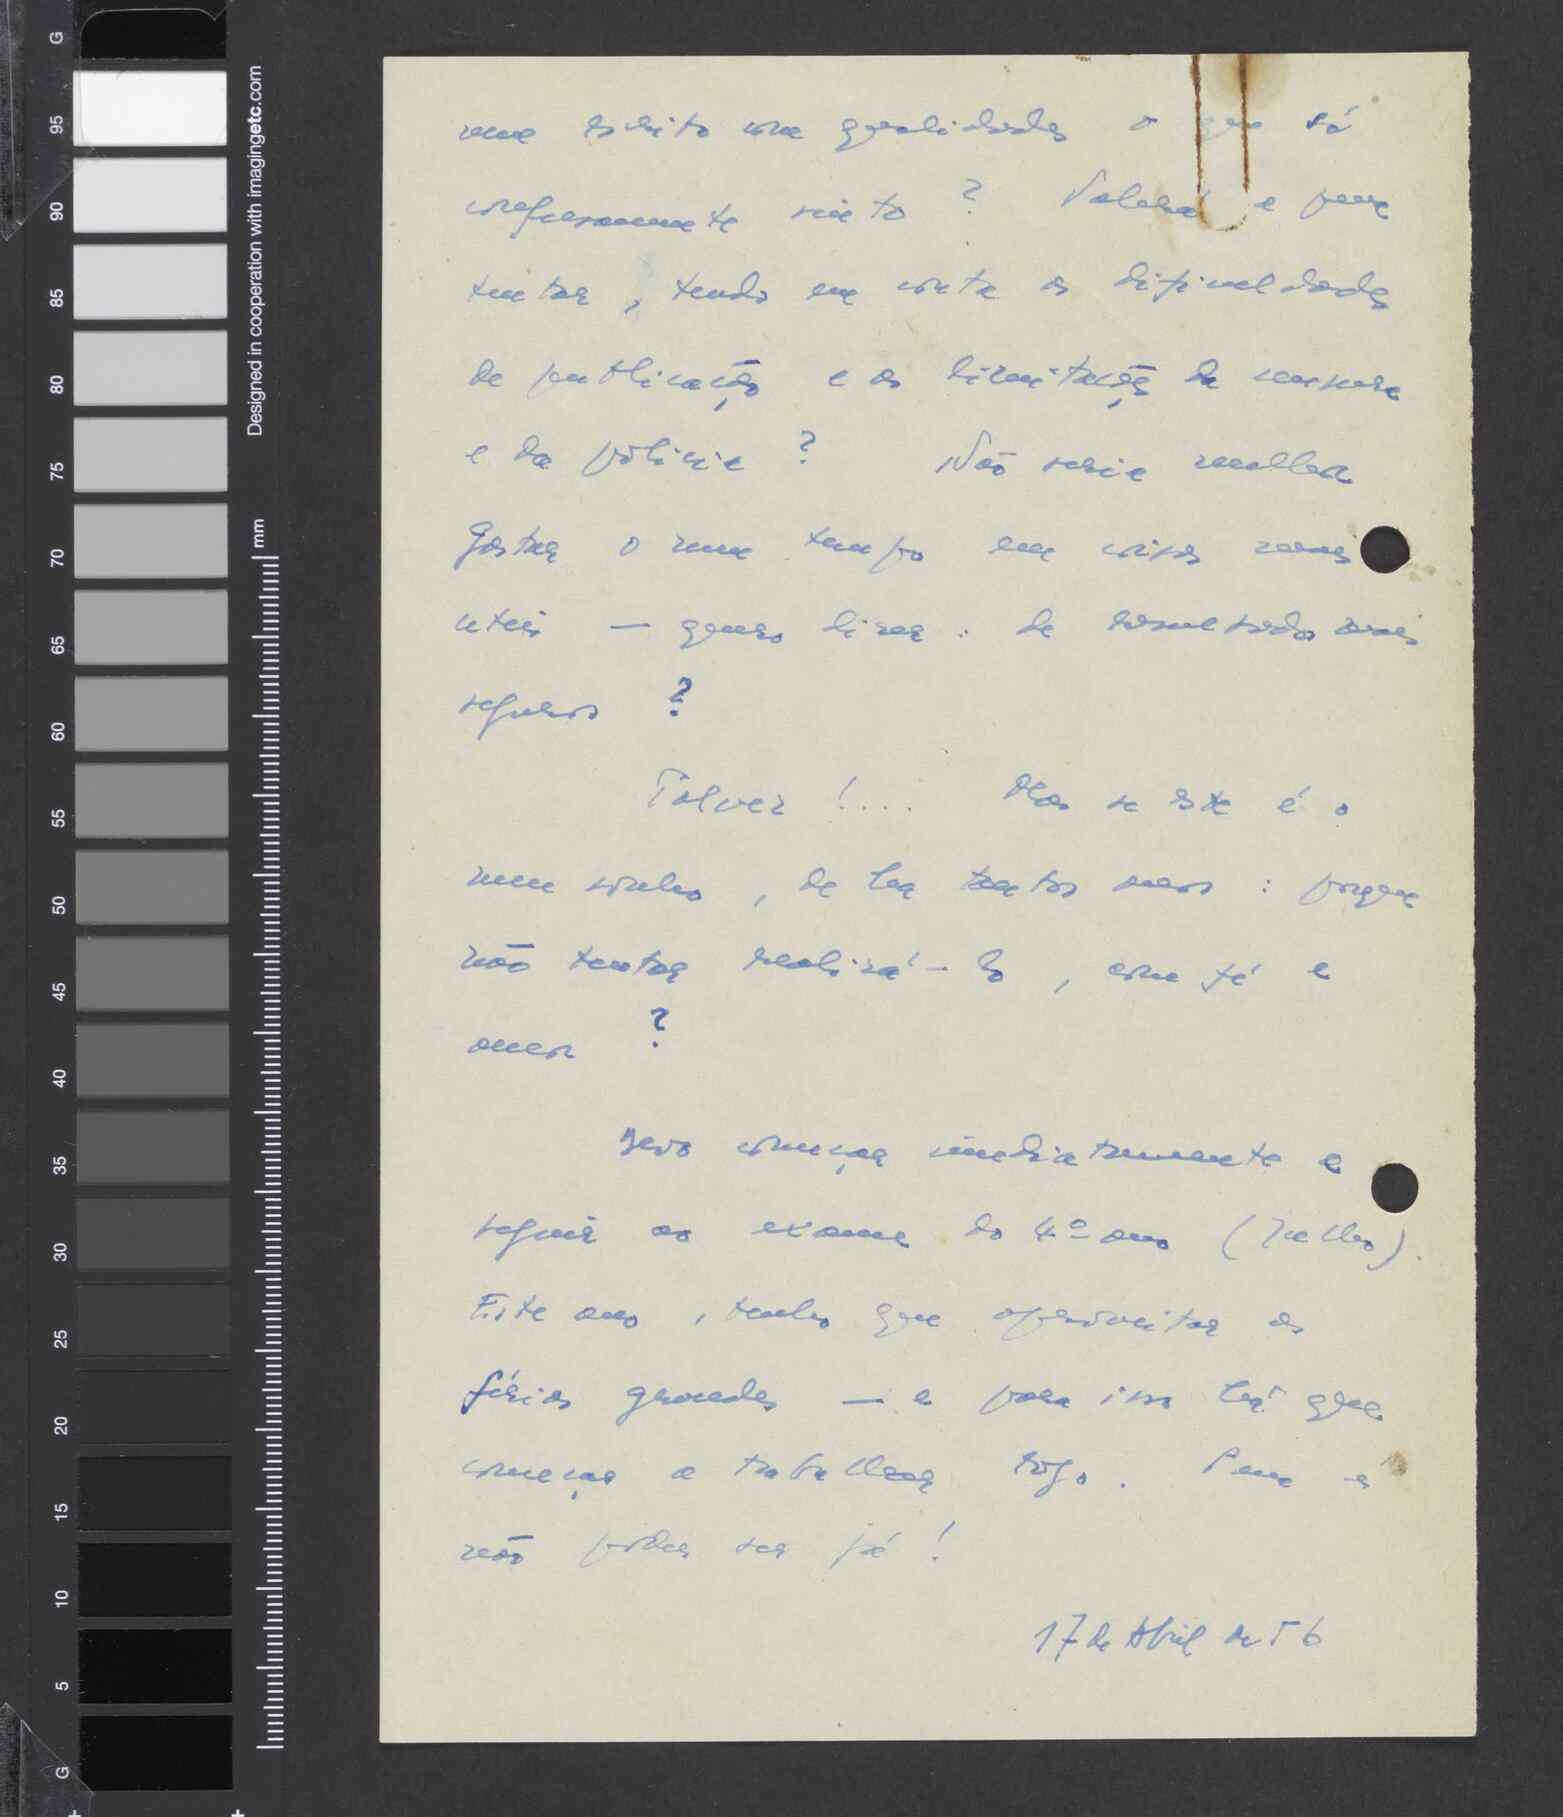 um escrito com qualidades o que só
confusamente sinto ? Valerá a pena
tentar , tendo em conta as dificuldades
de publicação e as limitações da censura
e da policia ? Não seria melhor
gastar o meu tempo em coisas mais
uteis — quero dizer : de resultados mais
seguros ?
Talvez !... Mas se este é o
meu sonho , de há tantos anos : porque
não tentar realizá-lo , com fé e
amor ?
Devo começar imediatamente a
seguir ao exame do 4º ano (Julho).
Este ano , tenho que aproveitar as
férias grandes — e para isso há que
começar a trabalhar logo . Pena é
não poder ser já !
17 de Abril de 56
G
95
90
85
80
75
70
65
60
55
50
45
40
35
30
25
20
15
10
5
G
Designed in cooperation with imagingetc.com
mm